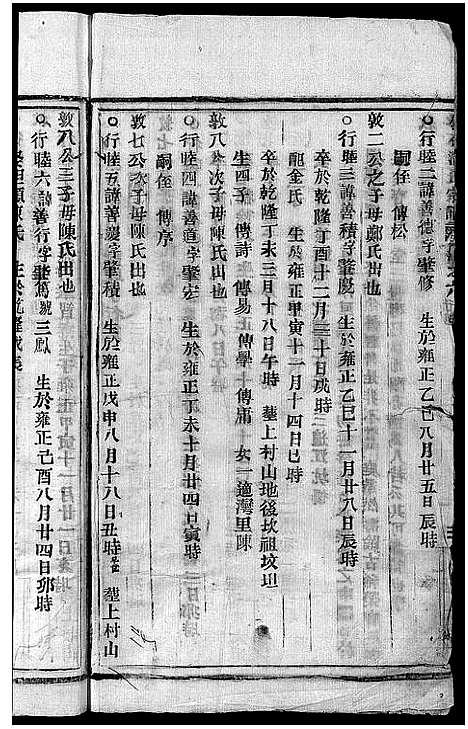 ○行睦二諱善德字肇修　生於雍正乙巳八月廿五日辰時
嗣侄　傳松
敦二公之子母鄭氏出也
○行睦三諱善積字肇慶　生於雍正乙巳十一月廿八日辰時
卒於乾隆丁酉十二月三十日戌時
配金氏　生於雍正甲寅十二月十四日巳時
卒於乾隆丁未三月十八日午時　塟上村山地後坎祖坟坦
生四子　傳詩　傳易　傳學　傳庸　女一適灣里陳
敦八公次子母陳氏出也
○行睦四諱善道字肇宏　生於雍正丁未十月廿四日寅時
嗣侄　傳序
敦七公次子母陳氏出也
○行睦五諱善慶字肇積　生於雍正戊申八月十八日丑時　塟上村山
敦八公三子母陳氏出也
○行睦六諱善行字肇篤號三鳳　生於雍正己酉八月廿四日卯時